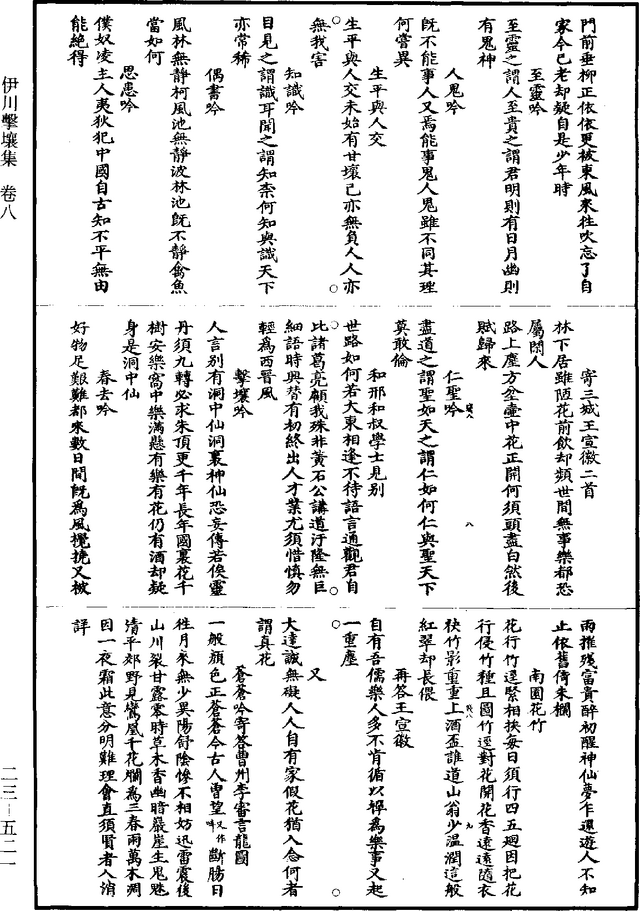 門前垂柳正依依更被東風來往吹忘了自
家今已老却疑自是少年時
至靈吟
至靈之謂人至貴之謂君明則有日月幽則
有鬼神
人鬼吟
既不能事人又焉能事鬼人鬼雖不同其理
何嘗異
生平與人交
生平與人交未始有甘壞己亦無負人人亦
無我害
知識吟
目見之謂識耳聞之謂知柰何知與識天下
亦常稀
偶書吟
風林無靜柯風池無靜波林池既不靜禽魚
當如何
思患吟
僕奴凌主人夷狄犯中國自古知不平無由
能絕得
寄三城王宣徽二首
林下居雖陋花前飲却頻世間無事樂都恐
屬閑人
路上塵方坌壷中花正開何須頭盡白然後
賦歸來
仁聖吟
盡道之謂聖如天之謂仁如何仁與聖天下
莫敢倫
和邢和叔學士見別
世路如何若大東相逢不待語言通觀君自
比諸葛亮顧我殊非黃石公講道汙隆無巨
細語時興替有初終出人才業尤須惜慎勿
輕為西晉風
擊壤吟
人言別有洞中仙洞裏神仙恐妄傳若俟靈
丹須九轉必求朱頂更千年長年國裏花千
樹安樂窩中樂滿懸有樂有花仍有酒却疑
身是洞中仙
春去吟
好物足艱難都來數日間既為風攪挽又被
雨摧殘富貴醉初醒神仙夢乍還遊人不知
止依舊倚朱欄
南園花竹
花行竹逕緊相挾每日須行四五迴因把花
行侵竹種且圖竹逕對花開花香遠遠隨衣
袂竹影重重上酒盃誰道山翁少溫潤這般
紅翠却長偎
再答王宣徽
自有吾儒樂人多不肯循以禪為樂事又起
一重塵
又
大達誠無礙人人自有家假花猶入念何者
謂真花
蒼蒼吟寄答曹州李審言龍圖
一般顏色正蒼蒼今古人曾望又作斷腸日
往月來無少異陽舒陰慘不相妨迅雷震後
山川裂甘露零時草木香幽暗巖崖生鬼魅
清平郊野見鸞凰千花爛為三春雨萬木凋
因一夜霜此意分明難理會直須賢者入消
詳
伊川擊壤集 卷八
二三—五二一